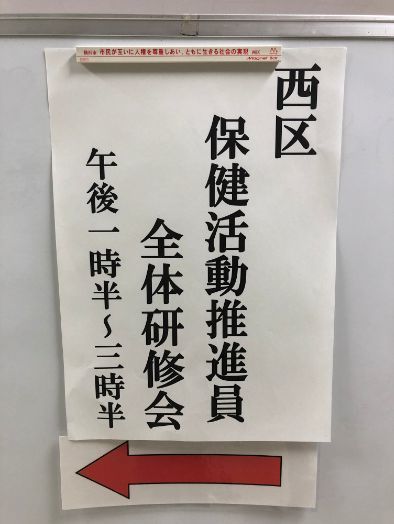 市民が互いに人権を尊重しあい、ともに生きる社会の実現
西区
保健活動推進員
全体研修会
午後一時半～三時半